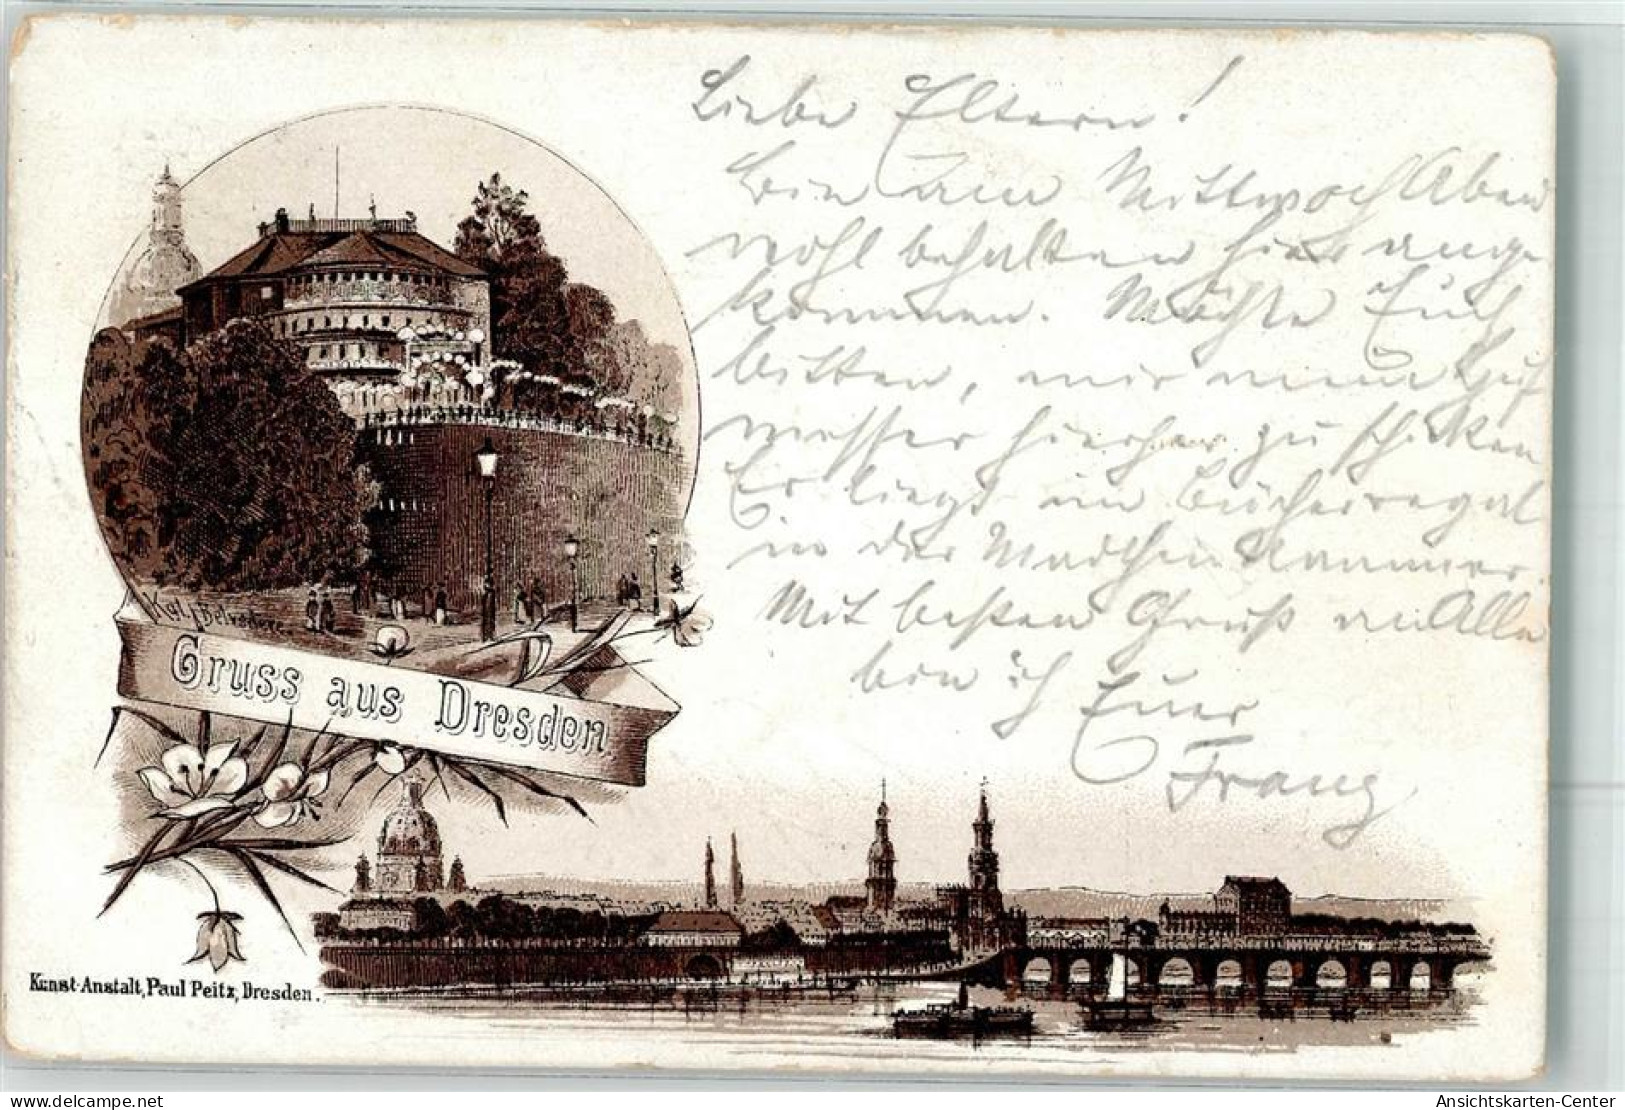 Liebe Eltern!
Bin am Mittwoch Abend
wohl behalten hier ange
kommen. Möchte Euch
bitten, mir meine
messer hierher zu schicken
Er liegt im Bücherregal
in der Mädchenkammer.
Mit besten Gruß an Alle
bin ich Euer
Franz
Kgl. Belvedere.
Gruss aus Dresden
Kunst-Anstalt, Paul Peitz, Dresden.
oldthing.de
Ansichtskarten-Center